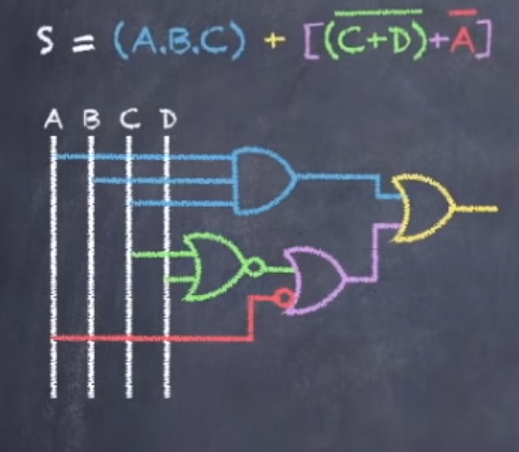 S = (A.B.C) + [(C̅+̅D̅)+A̅]
A B C D